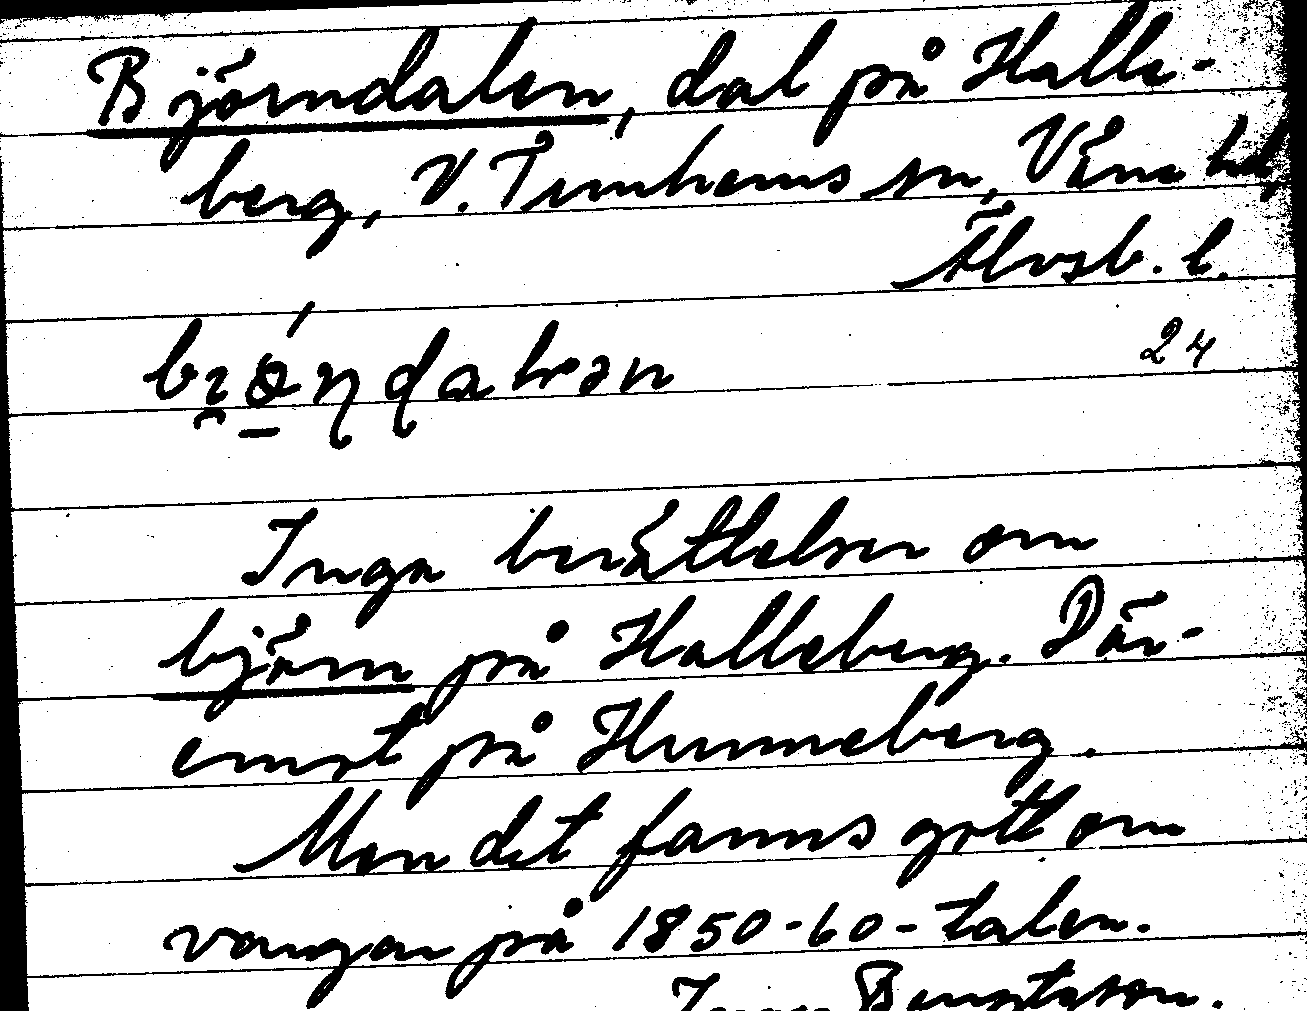 Björndalen, dal på Halle-
berg, V. Tunhems sn, Väne hd,
Älvsb. l.
24
Inga berättelser om
björn på Halleberg. Där-
emot på Hunneberg.
Men det fanns gott om
vargar på 1850-60-talen.
Bengtsson.